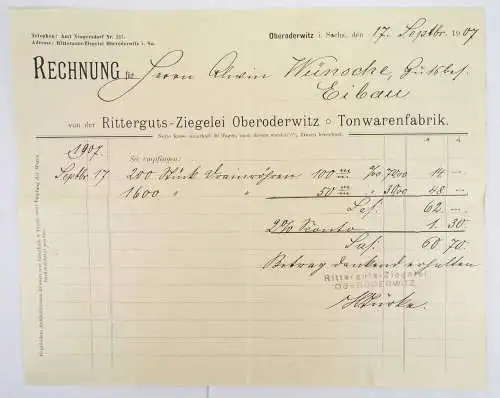 Telephon: Amt Neugersdorf Nr. 211.
Adresse: Ritterguts-Ziegelei Oberoderwitz i. Sa.
Oberoderwitz i. Sachs., den 17. Septbr. 1907
RECHNUNG für Herrn Alwin Wünsche, Gutsbes.
Eibau
von der Ritterguts-Ziegelei Oberoderwitz ○ Tonwarenfabrik.
Netto Kasse innerhalb 30 Tagen, nach diesen werden Zinsen berechnet.
1907.
Sie empfingen:
Septbr. 17 200 Stück Drainröhren 100 m/m 14 –
1600 " " 50 m/m " 3000 48 –
Sa: 62 –
2% Sconto 1. 30.
Sa: 60 70.
Betrag dankend erhalten
Ritterguts-Ziegelei
OBERODERWITZ